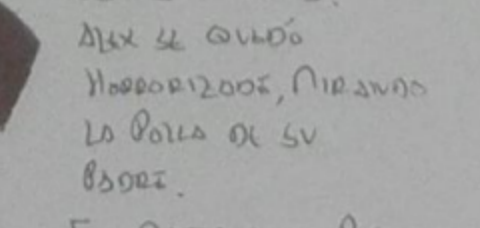 ALEX SE QUEDÓ
HORRORIZADE, MIRANDO
LA POLLA DE SU
PADRE.